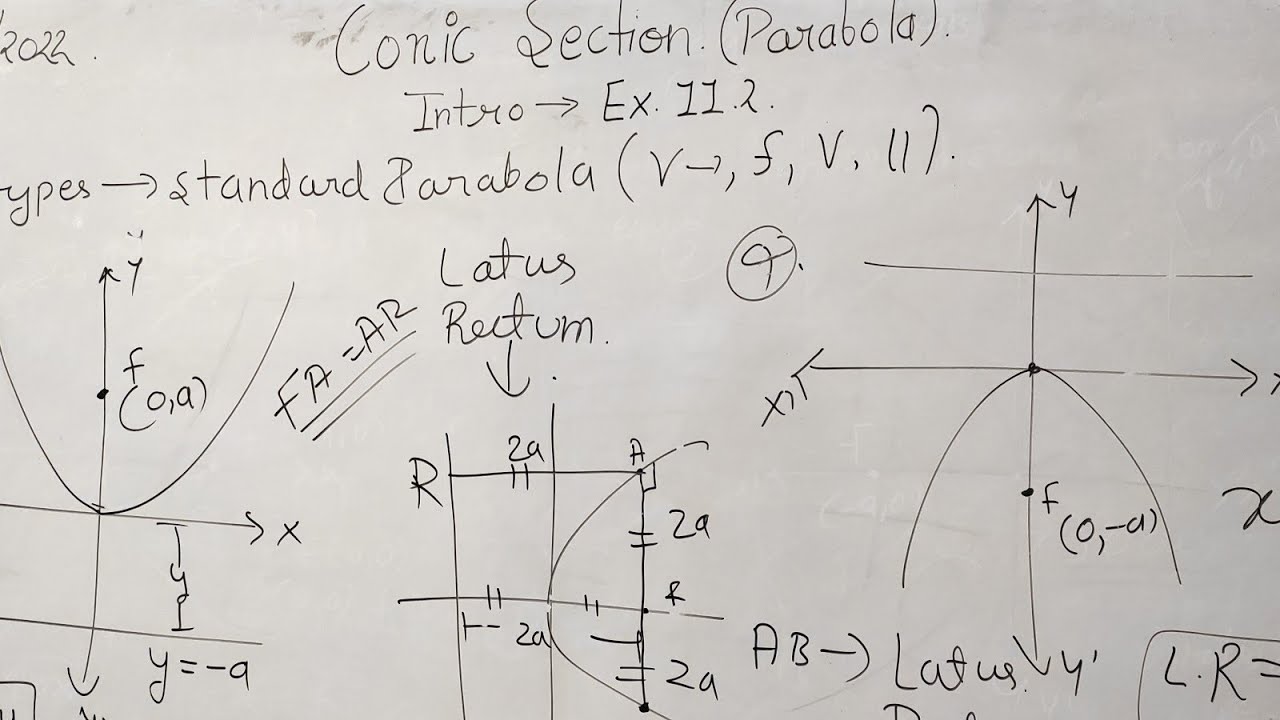 2022.
Conic Section. (Parabola).
Intro → Ex. 11.2.
ypes → Standard Parabola (V→, f, V, 11).
y
f
(0,a)
x
y
y = -a
FA = AR
Latus
Rectum.
2a
A
R
2a
2a
2a
y
x
f
(0,-a)
x
AB → Latus
y'
L.R =